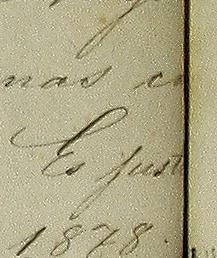 mas c
Es just
1878.